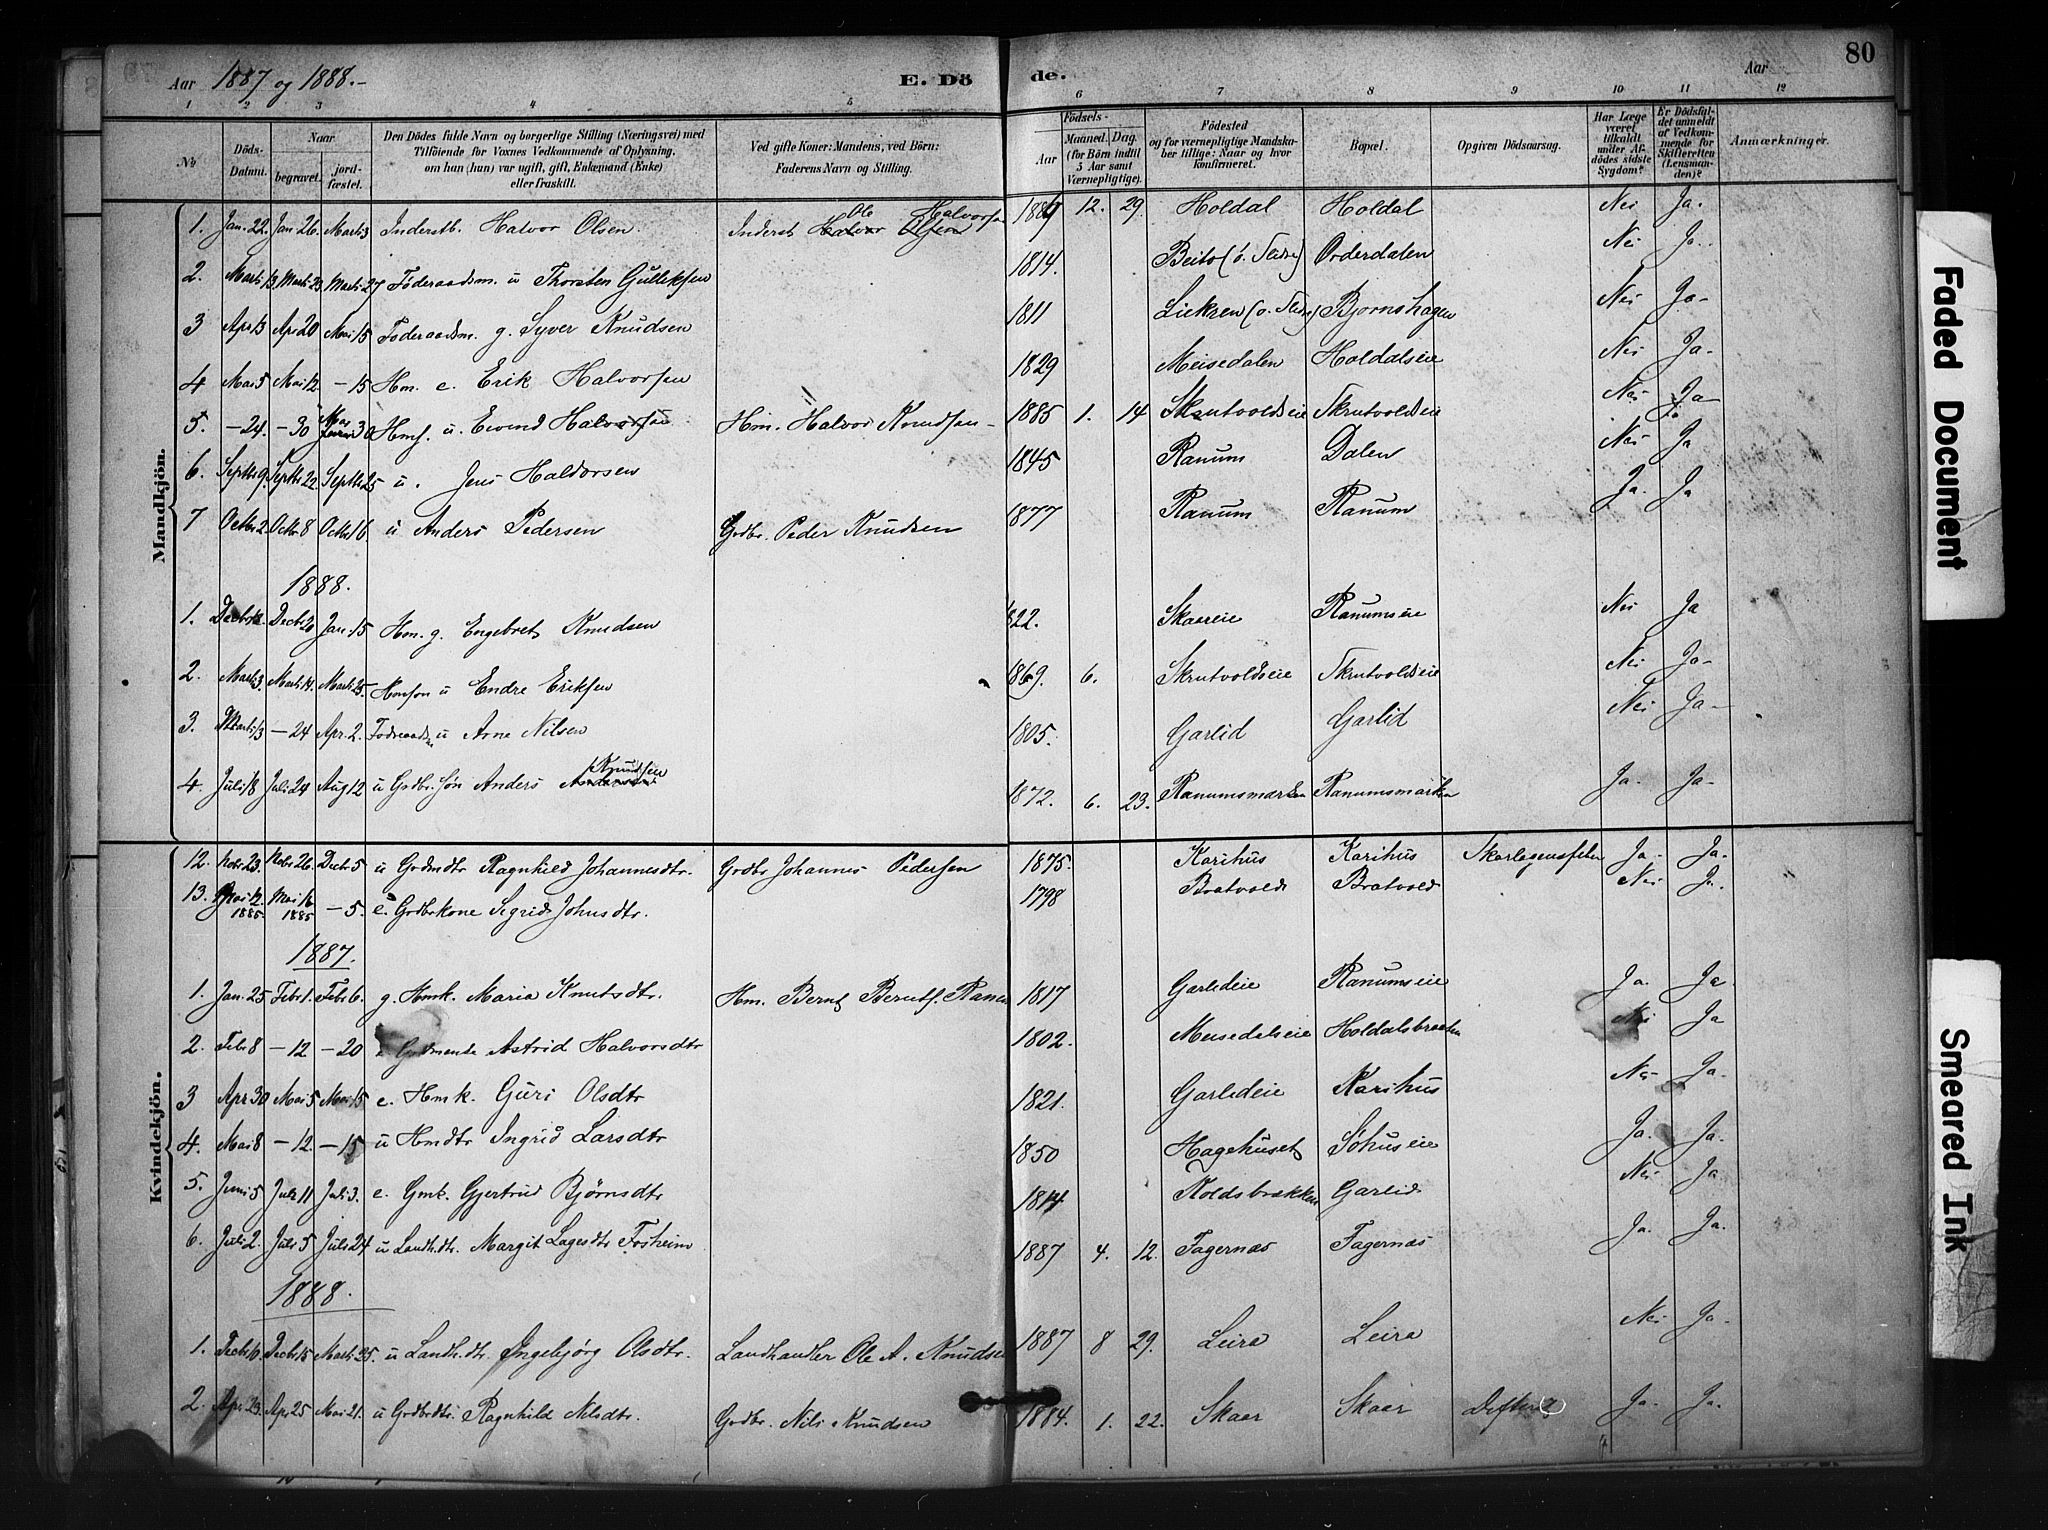 Aar 1887 og 1888.- E. Dö de. Aar 80
1 2 3 4 5 6 7 8 9 10 11 12
No Döds-Datum. Naar begravet. jordfæstet. Den Dödes fulde Navn og borgerlige Stilling (Næringsvei) med Tilföiende for Voxnes Vedkommende af Oplysning, om han (hun) var ugift, gift, Enkemand (Enke) eller fraskilt. Ved gifte Koner: Mandens, ved Börn: Faderens Navn og Stilling. Födsels- Aar Maaned. Dag. (for Börn indtil 3 Aar samt Værnepligtige). Födested og for værnepligtige Mandskaber tillige: Naar og hvor konfirmeret. Bopæl. Opgiven Dödsaarsag. Har Læge været tilkaldt under Afdödes sidste Sygdom? Er Dödsfaldet anmeldt af Vedkommende for Skifteretten (Lensmanden)? Anmærkninger.
Mandkjön.
1. Jan. 22. Jan 26. Marti 3 Inderstb. Halvor Olsen. Inderst Ole Halvorsen 12. 29 Holdal Holdal Nei Ja.
2. Marti 13 Marti 23 Marti 27 Föderaadsm. u Thorsten Gulleksen 1814. Beito (ö. Slidre) Orderdalen Nei Ja.
3 Apr 13 Apr 20 Mai 15 Föderaadsm. g. Syver Knudsen 1811 (ö. Slidre) Bjørnshagen Nei Ja-
4 Mai 5 Mai 12. -15 Hm. e. Erik Halvorsen 1829 Meisedalen Holdalseie Nei Ja-
5. -24. -30 30 Hmf. u. Eivind Halvorsen Hm. Halvor Knudsen- 1885 1. 14 Skrutvoldseie Skrutvoldseie Nei Ja-
6. Septbr 9. Septbr 22. Septbr 25 u. Jens Haldorsen 1845 Ranum Dalen Nei Ja
7 Octbr 2. Octbr 8 Octbr 16 u Anders Pedersen Grdbr. Peder Knudsen 1877 Ranum Ranum Ja. Ja
1888.
1. Decbr 12. Decbr 20 Jan. 15 Hm. g. Engebret Knudsen 1822. Skaareie Ranumseie Nei Ja
2. Marti 3. Marti 14. Marti 25. Hmson u Endre Eriksen 1869. 6. Skrutvoldseie Skrutvoldseie Nei Ja-
3. Marti 13 -24 Apr. 2. Föderaadsm u Arne Nilsen 1805. Garlid Garlid Nei Ja-
4. Juli 18 Juli 24 Aug 12 u Grdbr. sön Anders Knudsen 1872. 6. 23. Ranumsmarken Ranumsmarken Ja. Ja-
Kvindekjön.
12. Nobr 23. Nobr 26. Decbr 5 u Grdmdtr Ragnhild Johannesdtr. Grdbr Johannes Pedersen 1875. Karihus Karihus Skarlagensfeber Ja- Ja.
13. Mai 12. 1885. Mai 16 1885 -5. e. Grdbrkone Sigrid Johnsdtr. 1798 Bratvold Bratvold Nei Ja.
1887.
1. Jan. 25 Febr 1. Febr 6. g. Hmk. Maria Knutsdtr. Hm. Bernt Bernts. Ranum 1817 Garlideie Ranumseie Ja. Ja
2. Febr 8 -12 -20 Astrid Halvorsdtr 1802. Meisedalseie Holdalsbraaten Nei Ja
3 Apr 30 Mai 5 Mai 15 e. Hmk. Guri Olsdtr 1821. Garlideie Karihus Nei Ja.
4. Mai 8 -12. -15 u Hmdtr Ingrid Larsdtr 1850 Hagehuset Söhuseie Ja. Ja.
5. Juni 5 11 Juli 3. e. Gmk. Gjertrud Björnsdtr 1814 Koldsbrækken Garlid Nei Ja
6. Juli 2. Juli 5 Juli 24 u Landh.dtr. Margit Lagesdtr Fosheim 1887 4. 12. Fagernæs Fagernæs Ja. Ja.
1888.
1. Decbr 10. Decbr 15 Marti 25. u Landh.dtr. Ingebjörg Olsdtr. Landhandler Ole A. Knudsen 1887 8 29. Leira Leira Nei Ja-
2. Apr. 23. Apr 25 Mai 21. u Grdbrdtr. Ragnhild Nilsdtr. Grdbr. Nils Knudsen 1884. 1. 22. Skaar Skaar Difteri Ja. Ja.
Faded Document
Smeared Ink